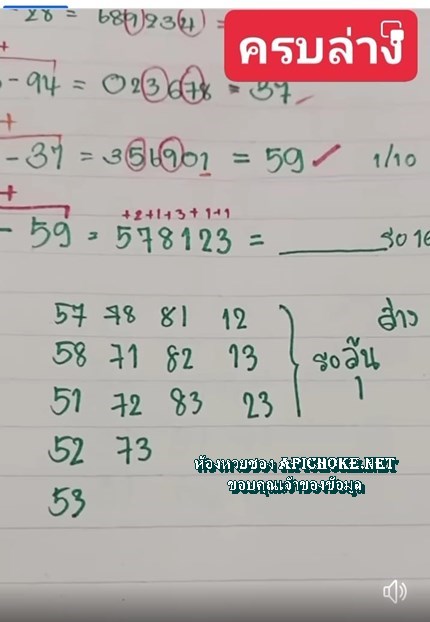 ครบล่าง
- 28 = 6891234 =
- 94 = 023678 = 37
+
- 37 = 356901 = 59 ✓ 1/10
+
+2+1+3+1+1
- 59 = 578123 = ______ รอ 16
57 78 81 12 ล่าง
58 71 82 13 รอลุ้น
51 72 83 23 1
52 73
53
ห้องหวยซอง APICHOKE.NET
ขอบคุณเจ้าของข้อมูล